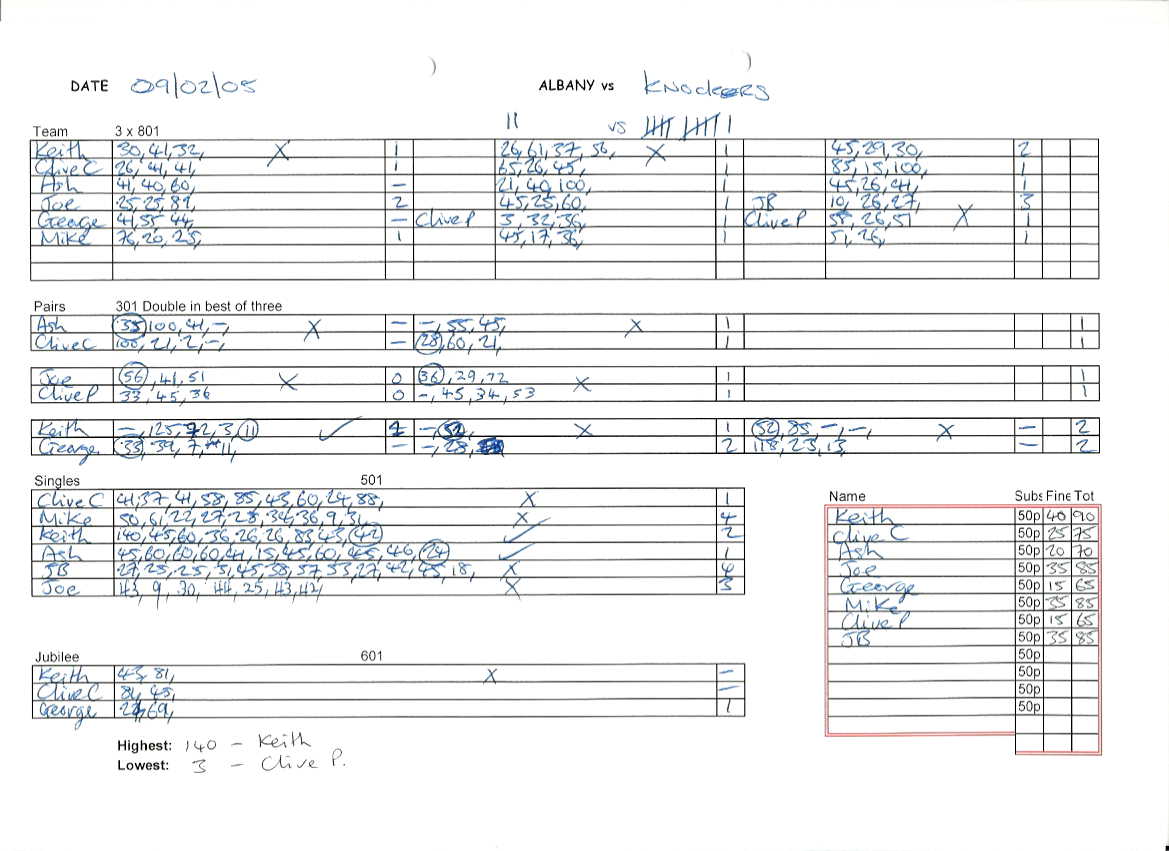 DATE 09/02/05 ALBANY vs KNOCKERS
11 vs
Team 3 x 801
Keith 30, 41, 32, X 1 26, 61, 37, 56, X 1 45, 29, 30, 2
Clive C 26, 41, 41, 1 65, 26, 45, 1 85, 15, 100, 1
Ash 41, 40, 60, – 21, 40, 100, 1 45, 26, 41, 1
Joe 25, 25, 81, 2 45, 25, 60, 1 JB 10, 26, 27, 3
George 41, 55, 44, – Clive P 3, 32, 36, 1 Clive P 55, 26, 51 X 1
Mike 76, 20, 25, 1 45, 17, 36, 1 51, 26, 1
Pairs 301 Double in best of three
Ash 35 100, 41, –, X – –, 55, 45, X 1 1
Clive C 100, 21, 2, –, – 28, 60, 21, 1 1
Joe 56, 41, 51 X 0 36, 29, 72 X 1 1
Clive P 33, 45, 36 0 –, 45, 34, 53 1 1
Keith –, 125, 72, 3, 11 ✓ –, 52, X 1 52, 85, –, –, X – 2
George 33, 39, 7, 11, – –, 28, 2 118, 23, 13, – 2
Singles 501
Clive C 41, 37, 41, 58, 85, 43, 60, 24, 88, X 1
Mike 50, 61, 22, 27, 28, 34, 36, 9, 31, X 4
Keith 140, 45, 60, 36, 26, 26, 83, 43, 42 ✓ 2
Ash 45, 60, 60, 60, 41, 15, 45, 60, 45, 46, 24 ✓ 1
JB 27, 25, 25, 5, 45, 38, 57, 53, 27, 42, 45, 18, X 4
Joe 43, 9, 30, 44, 25, 43, 42, X 3
Name Subs Fine Tot
Keith 50p 40 90
Clive C 50p 25 75
Ash 50p 20 70
Joe 50p 35 85
George 50p 15 65
Mike 50p 35 85
Clive P 50p 15 65
JB 50p 35 85
50p
50p
50p
50p
Jubilee 601
Keith 43, 81, X –
Clive C 81, 45, –
George 69, 1
Highest: 140 – Keith
Lowest: 3 – Clive P.